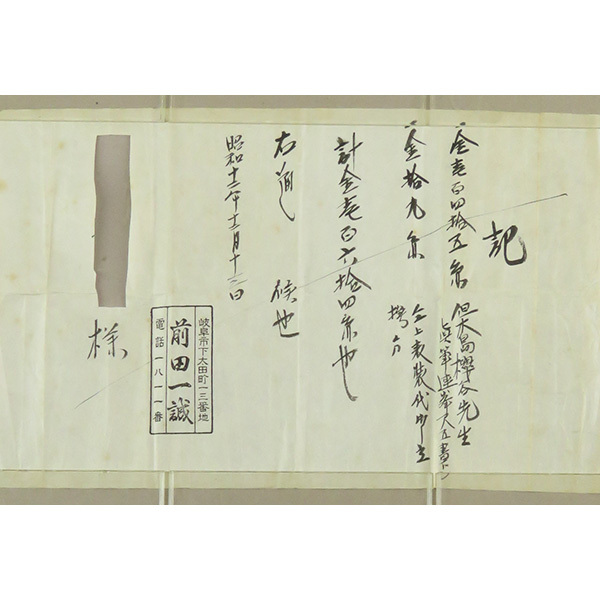 記
一金壱百四拾五円 但大島樺谷先生
一金拾九円 仝上表装代
計金壱百六拾四円也
右通 候也
昭和十二年十一月十二日
岐阜市下太田町一三番地
前田一誠
電話一八一一番
様